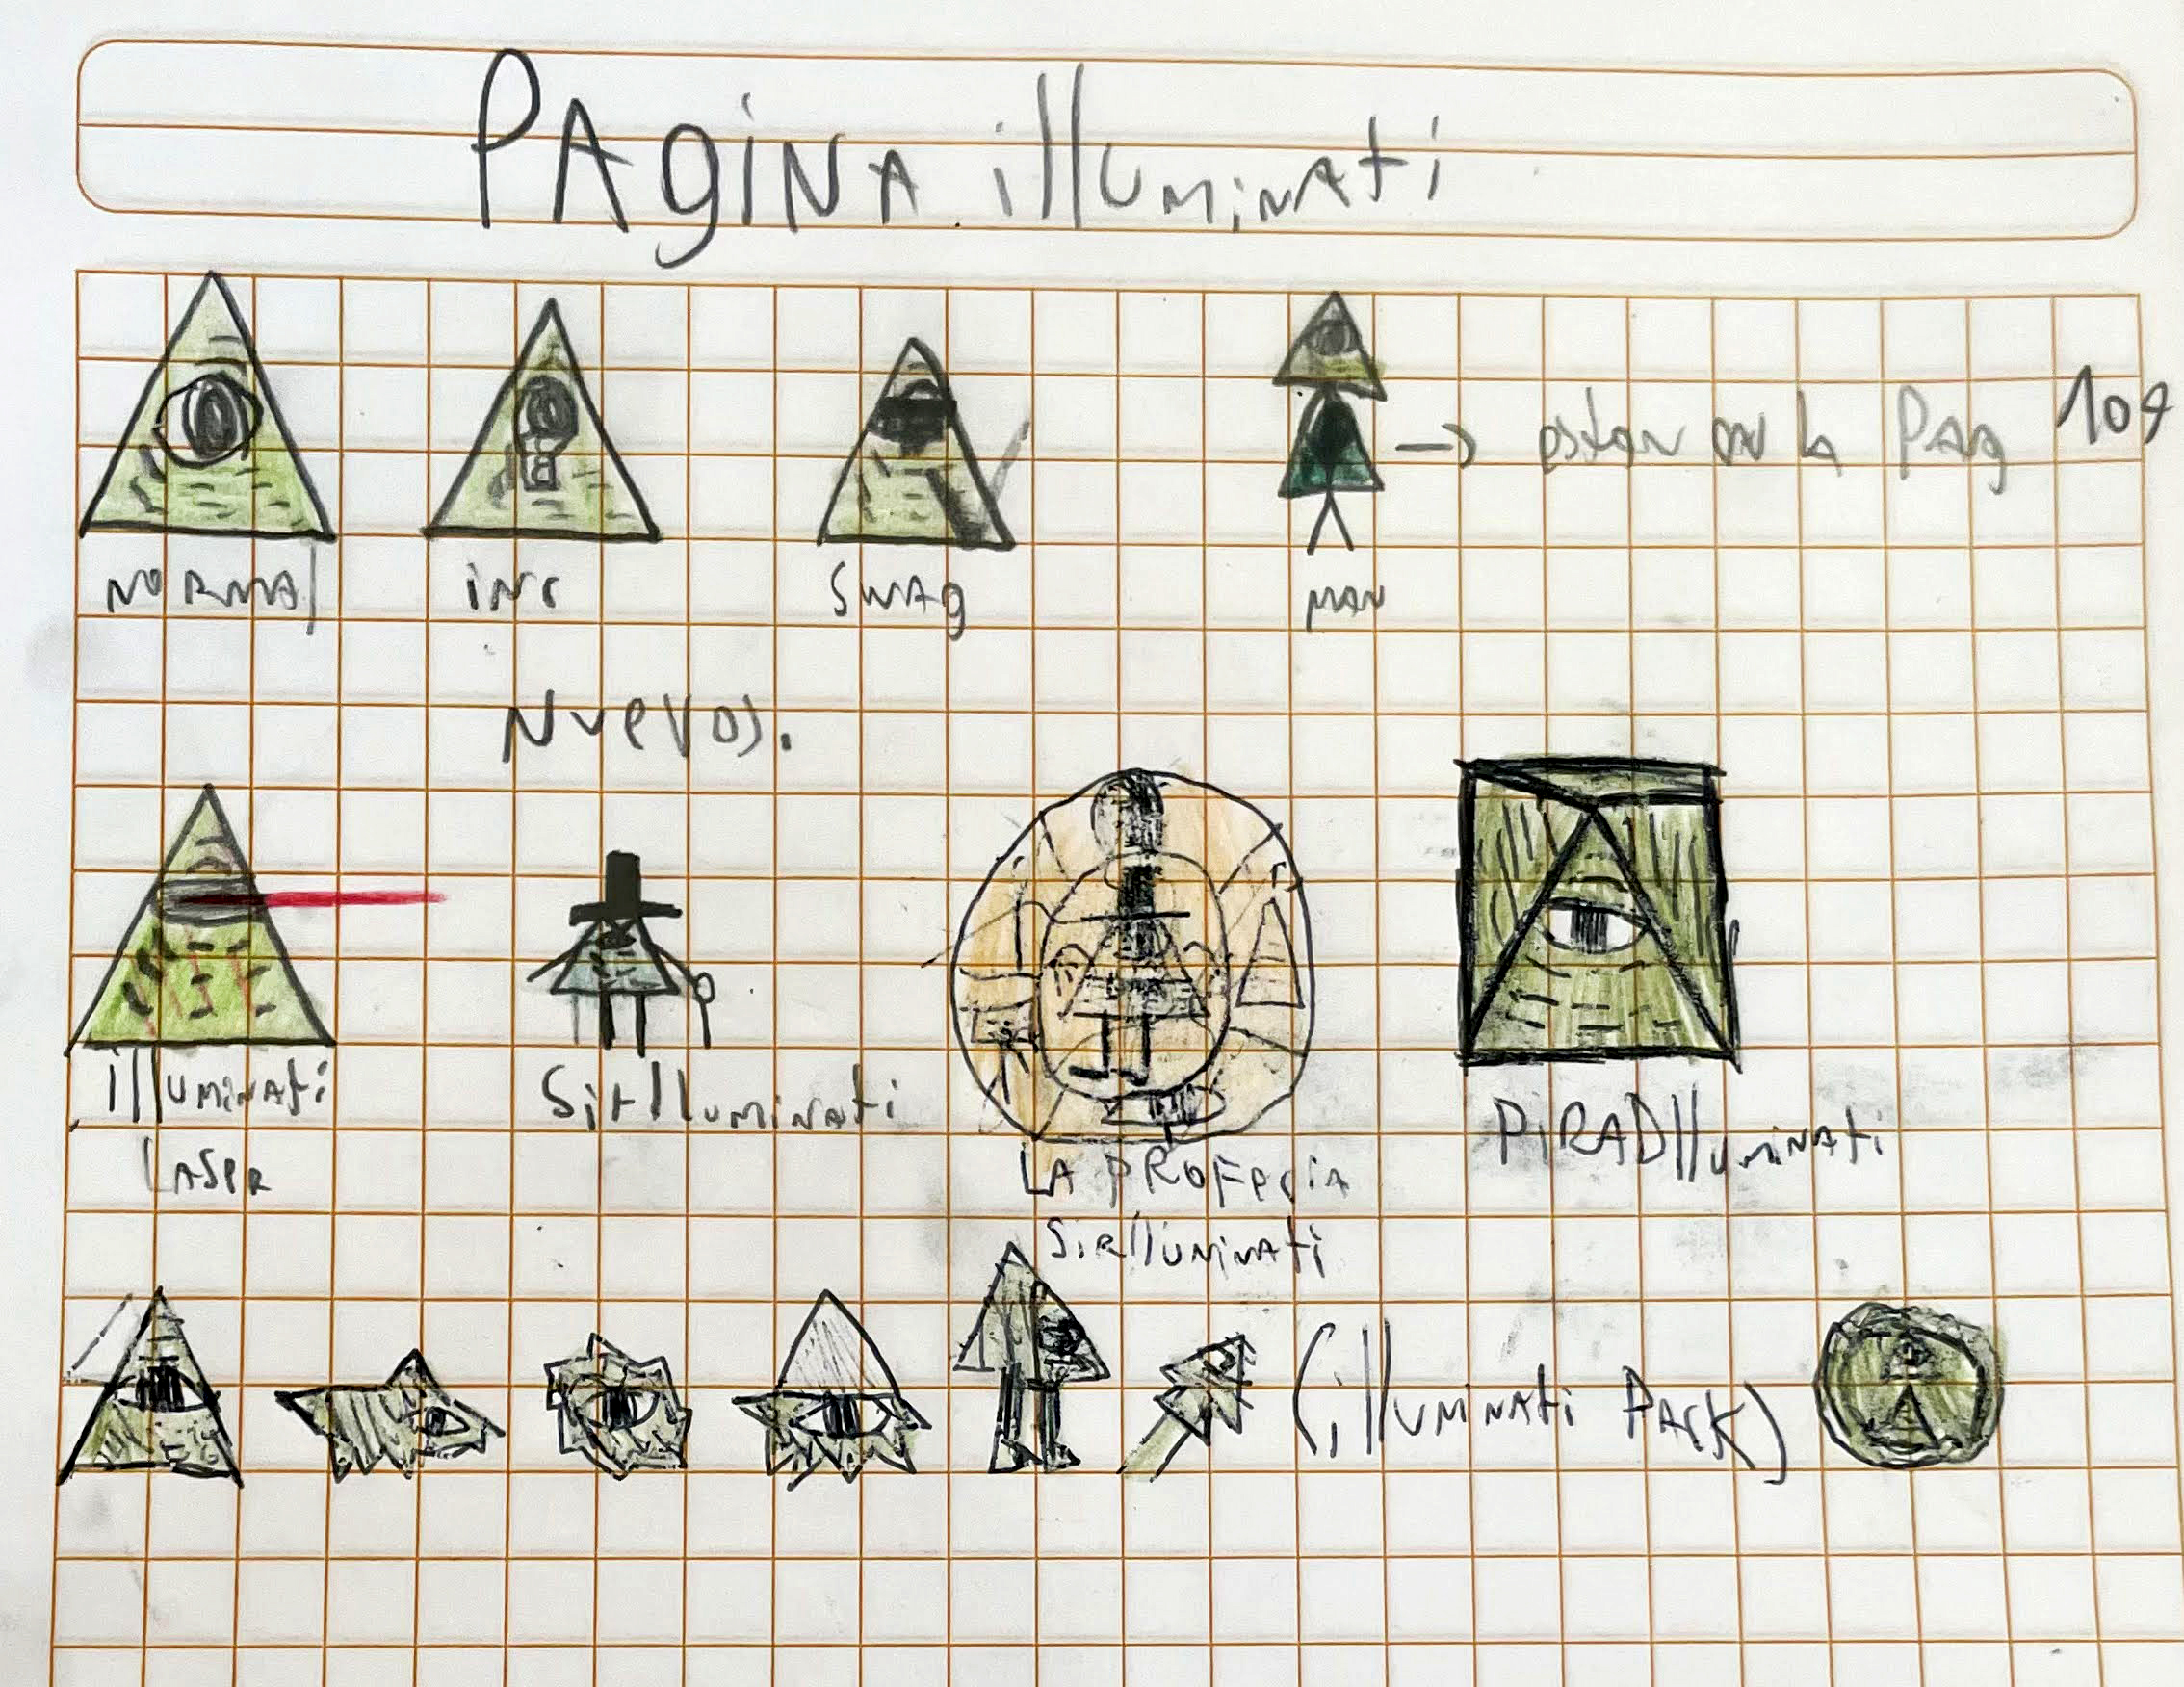 PAgiNA illuminati
→ estan en la Pag 109
NORMAl
inc
SwAg
MAN
Nuevos.
illuminati
LASeR
Sirlluminati
LA PROFecia
Sirlluminati
PiRADIluminati
(illuminati PAck)